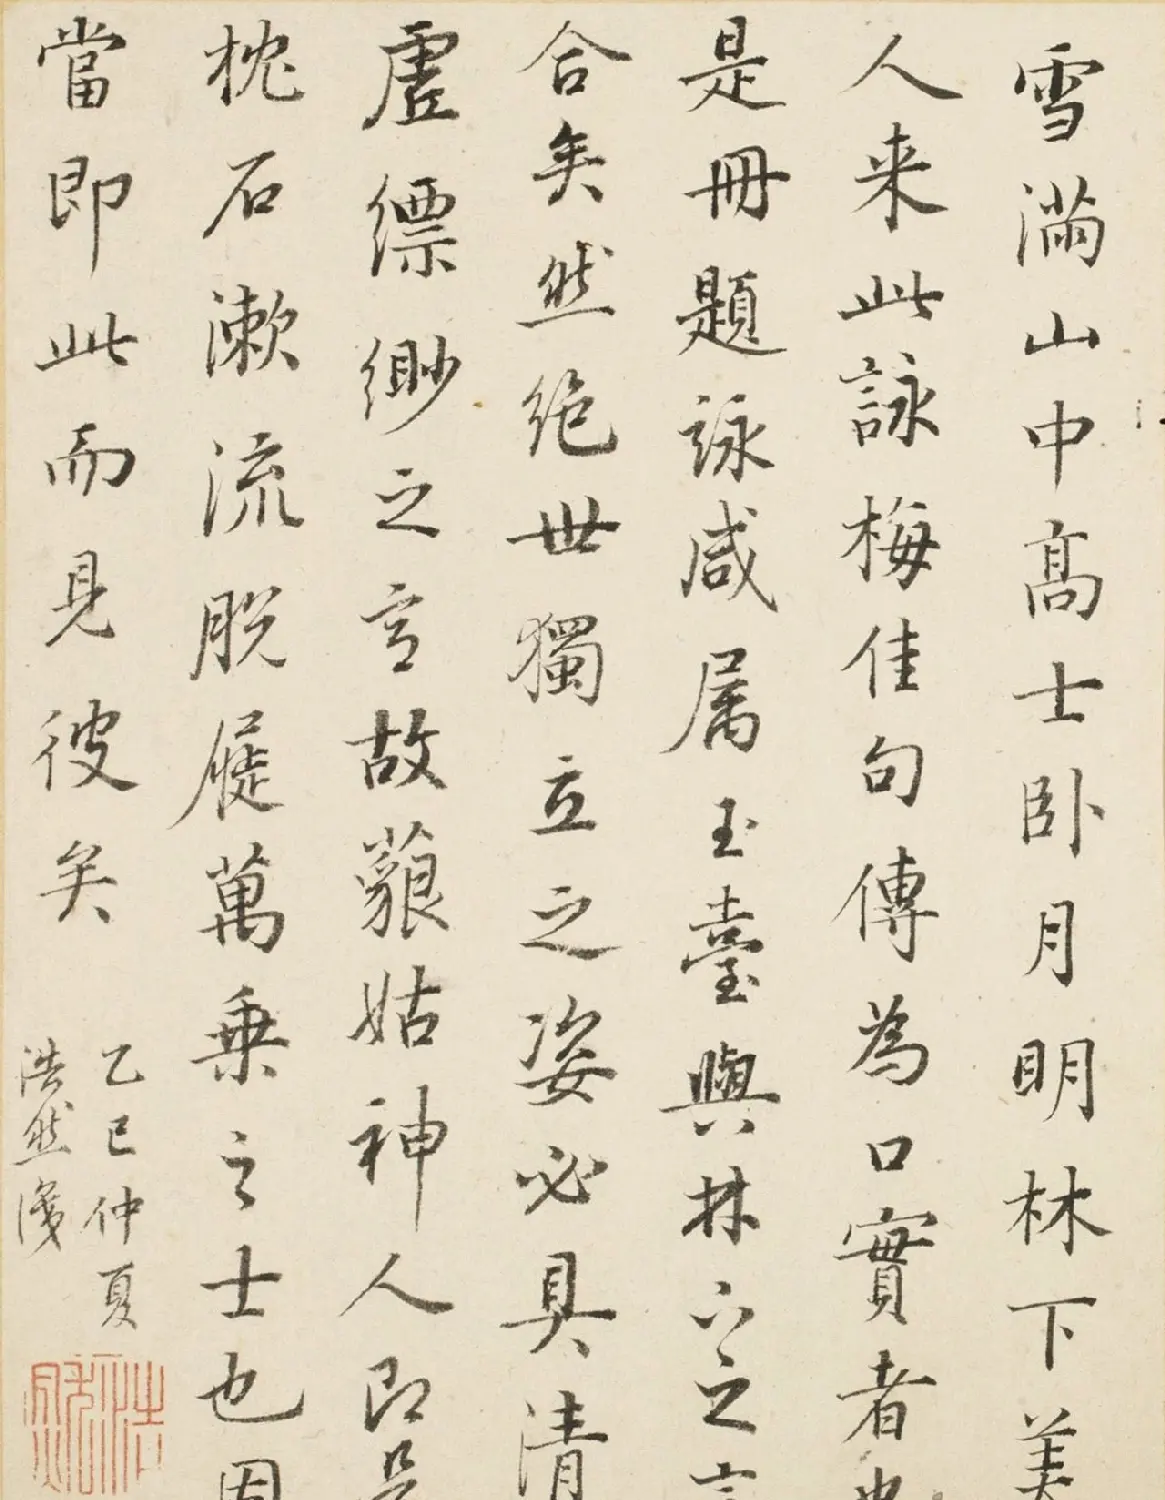 雪滿山中髙士卧月明林下美
人来此詠梅佳句傳為口實者也
是冊題詠咸属玉臺與林下之言
合矣然絶世獨立之姿必具清
虚縹緲之言故藐姑神人即是
枕石漱流脱屣萬乗之士也因
當即此而見彼矣
乙巳仲夏
浩然識